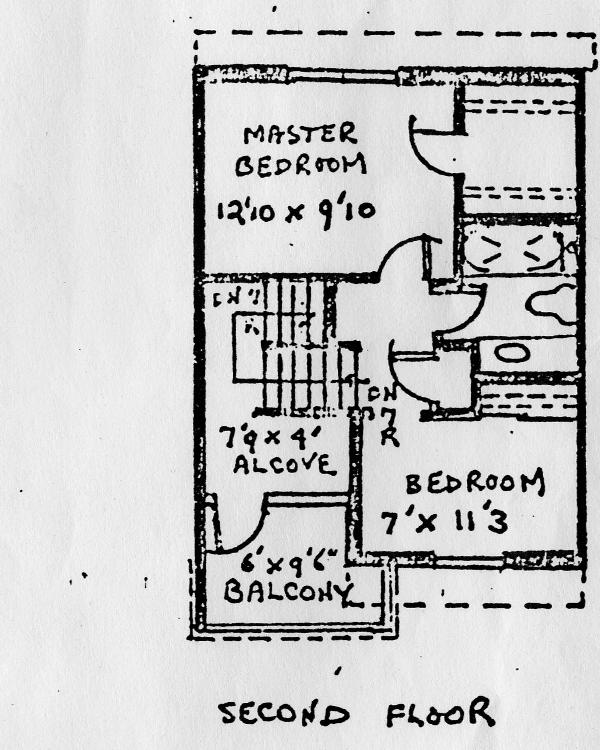 MASTER
BEDROOM
12'10 x 9'10
DN 7
R
DN
7
R
7'9 x 4'
ALCOVE
BEDROOM
7' x 11'3
6' x 9'6"
BALCONY
SECOND FLOOR